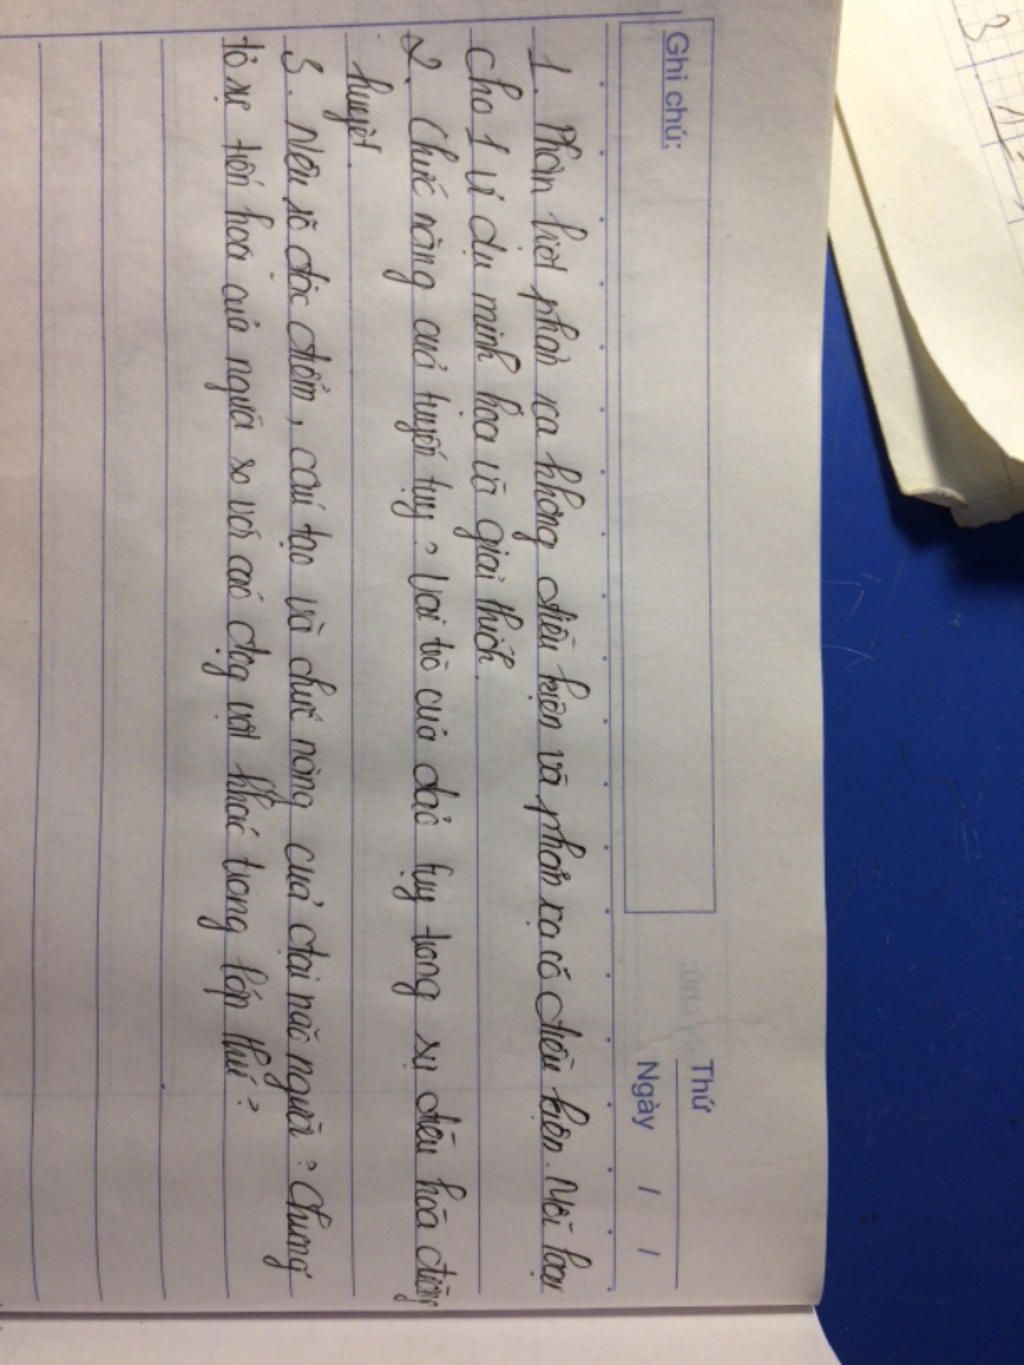 Ghi chú:
Thứ
Ngày / /
1. Phân biệt phản xạ không điều kiện và phản xạ có điều kiện. Mỗi loại
cho 1 ví dụ minh họa và giải thích.
2. Chức năng của tuyến tụy? Vai trò của đảo tụy trong sự điều hòa đường
huyết.
3. Nêu rõ đặc điểm, cấu tạo và chức năng của đại não người? Chứng
tỏ sự tiến hoá của người so với các động vật khác trong lớp thú?
3